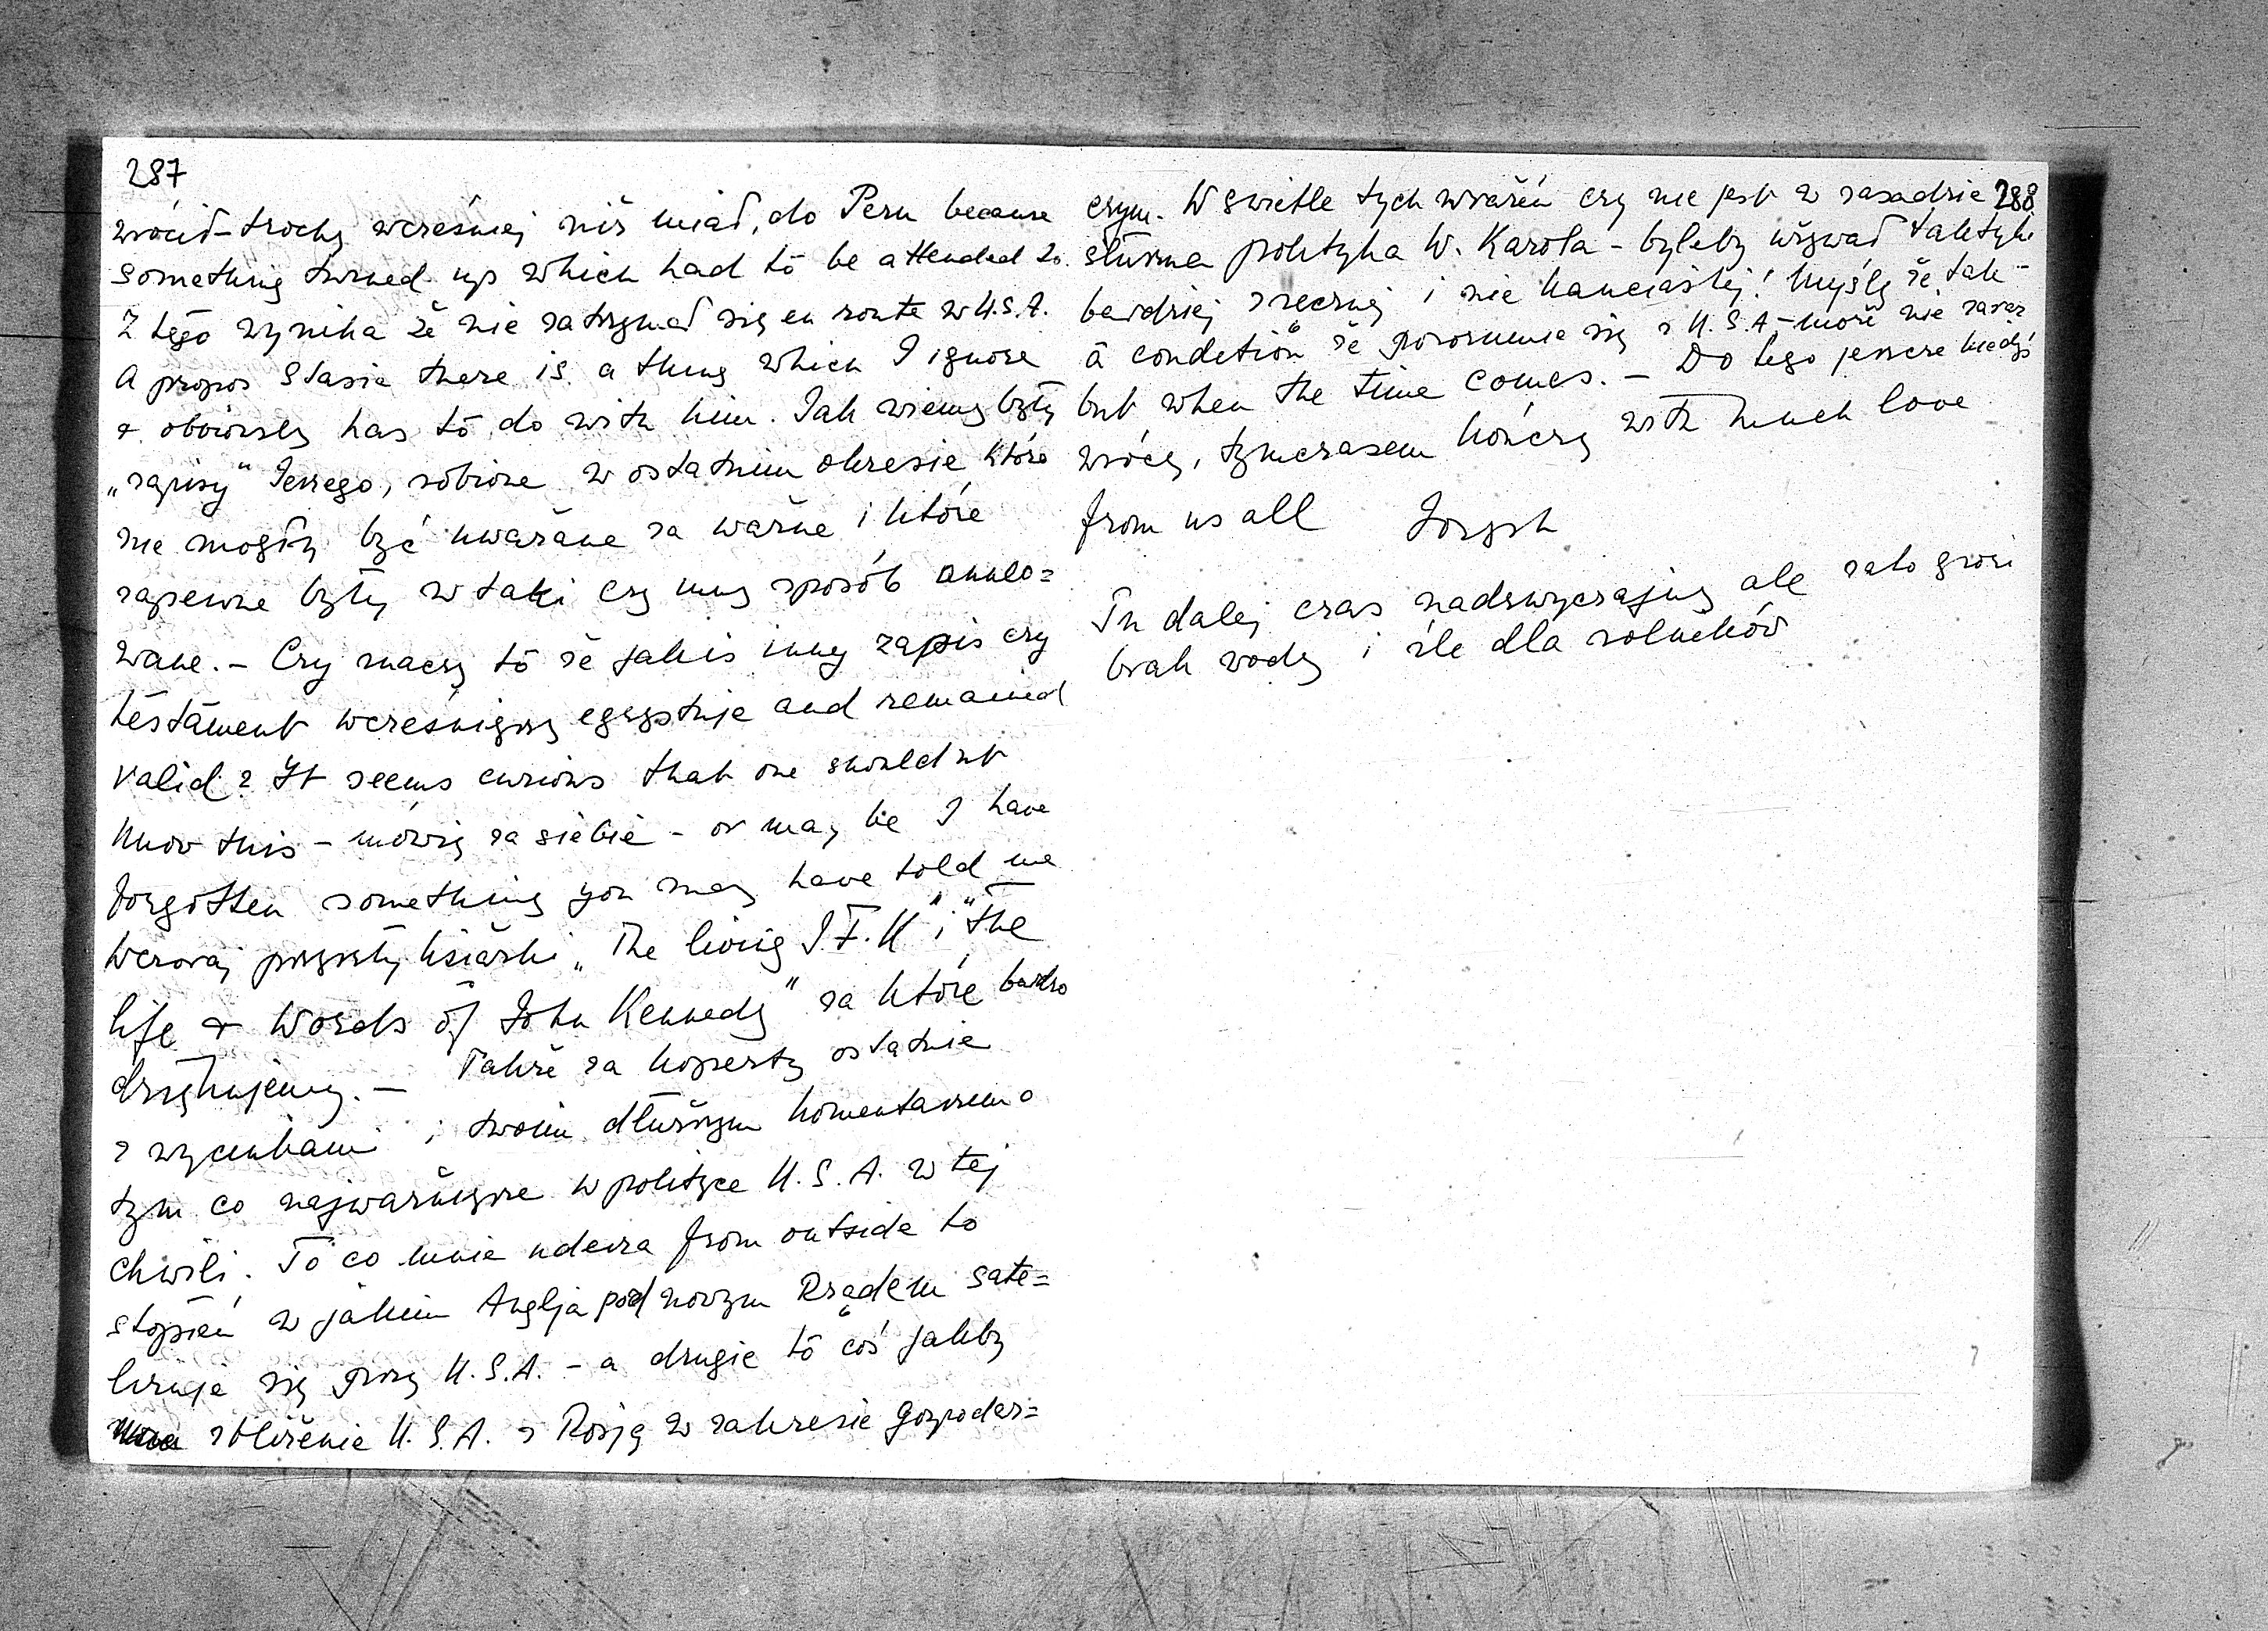 287
wrócił - trochę wcześniej niż miał, do Peru because
something turned up which had to be attended to.
Z tego wynika że nie zatrzymał się en route w U.S.A.
A propos Stasia there is a thing which I ignore
& obviously has to do with him. Jak wiemy były
„zapisy" Jerzego, robione w ostatnim okresie które
nie mogły być uważane za ważne i które
zapewne były w taki czy inny sposób anulo=
wane. - Czy znaczy to że jakiś inny zapis czy
testament wcześniejszy egzystuje and remained
valid? It seems curious that one shouldnt
know this - mówię za siebie - or may be I have
forgotten something you may have told me
Wczoraj przyszły książki „The living J.F.K" i "The
life & Words of John Kennedy" za które bardzo
dziękujemy. - Także za koperty ostatnie
z wycinkami i twoim dłuższym komentarzem o
tym co najważniejsze w polityce U.S.A. w tej
chwili. To co mnie uderza from outside to
stopień w jakim Anglja pod nowym Rządem sate=
lizuje się przy U.S.A. - a drugie to coś jakby
zbliżenie U.S.A. z Rosją w zakresie gospodar=
288
czym. W świetle tych wrażeń czy nie jest w zasadzie
słuszna polityka W. Karola - byleby używał taktyki
bardziej zręcznej i nie kanciastej! Myślę że tak -
à condition że porozumie się z U.S.A - może nie zaraz
but when the time comes. - Do tego jeszcze kiedyś
wrócę, tymczasem kończę with much love
from us all Józysh
Tu dalej czas nadzwyczajny ale zato grozi
brak wody i źle dla rolników